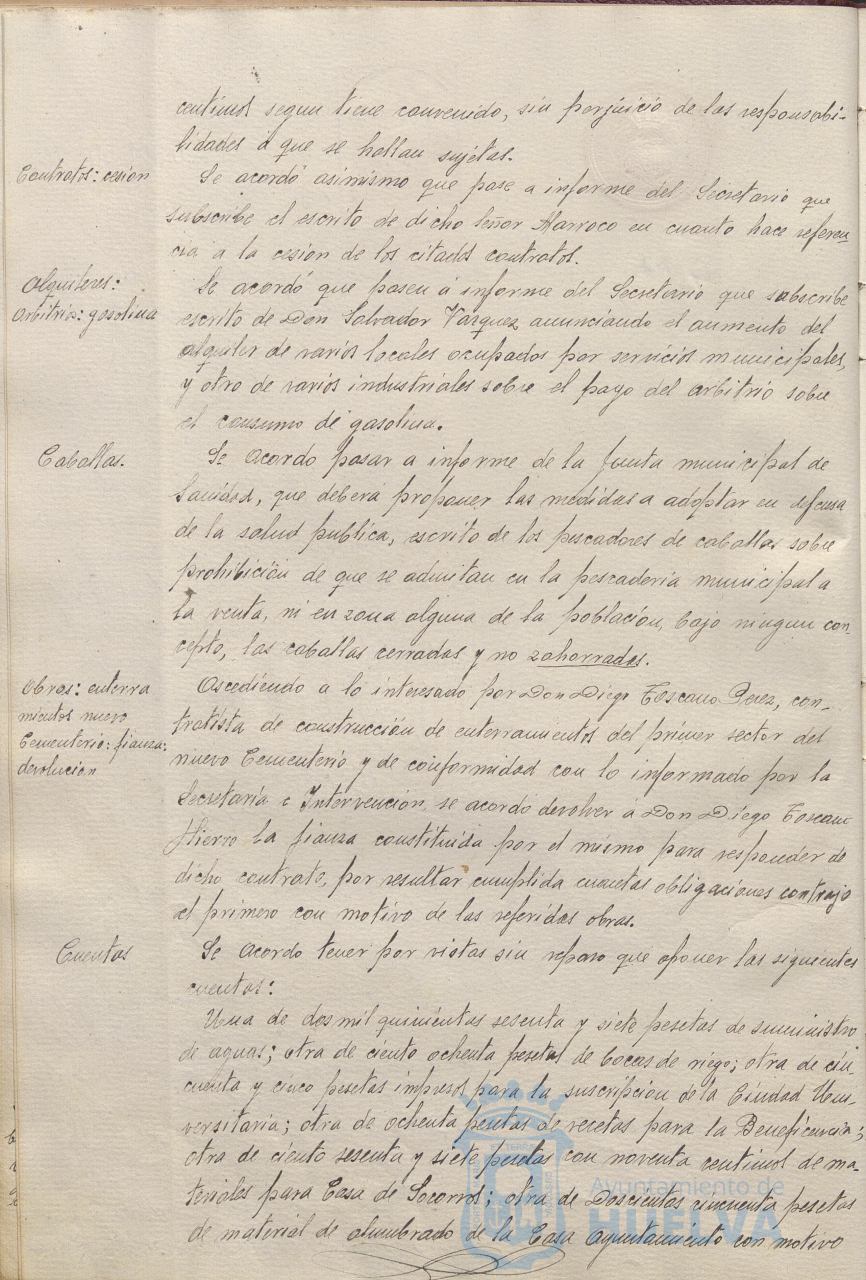 centimos segun tiene convenido, sin perjuicio de las responsabi-
lidades a que se hallan sujetas.
Contratos: cesion
Se acordó asimismo que pase a informe del Secretario que
subscribe el escrito de dicho Señor Marroco en cuanto hace referen-
cia a la cesion de los citados contratos.
Alquileres:
Arbitrios: gasolina
Se acordó que pasen á informe del Secretario que subscribe
escrito de Don Salvador Vazquez anunciando el aumento del
alquiler de varios locales ocupados por servicios municipales,
y otro de varios industriales sobre el pago del arbitrio sobre
el consumo de gasolina.
Caballas.
Se acordo pasar a informe de la Junta municipal de
Sanidad, que deberá proponer las medidas a adoptar en defensa
de la salud publica, escrito de los pescadores de caballas sobre
prohibición de que se admitan en la pescaderia municipal a
la venta, ni en zona alguna de la población, bajo ningun con-
cepto, las caballas cerradas y no zahorradas.
Obras: enterra
mientos nuevo
Cementerio: fianza:
devolucion
Accediendo a lo interesado por Don Diego Toscano Perez, con-
tratista de construcción de enterramientos del primer sector del
nuevo Cementerio y de conformidad con lo informado por la
Secretaría e Intervención, se acordó devolver á Don Diego Toscano
Hierro la fianza constituida por el mismo para responder de
dicho contrato, por resultar cumplida cuantas obligaciones contrajo
el primero con motivo de las referidas obras.
Cuentas
Se acordo tener por vistas sin reparo que oponer las siguientes
cuentas:
Una de dos mil quinientas sesenta y siete pesetas de suministro
de aguas; otra de ciento ochenta pesetas de bocas de riego; otra de cin-
cuenta y cinco pesetas impresos para la suscripcion de la Ciudad Uni-
versitaria; otra de ochenta pesetas de recetas para la Beneficencia;
otra de ciento sesenta y siete pesetas con noventa centimos de ma-
teriales para Casa de Socorros; otra de Doscientas cincuenta pesetas
de material de alumbrado de la Casa Ayuntamiento con motivo
Ayuntamiento de
HUELVA